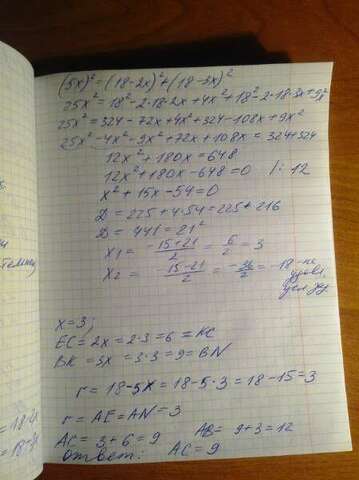 (5x)² = (18-2x)² + (18-3x)²
25x² = 18² - 2·18·2x + 4x² + 18² - 2·18·3x + 9x²
25x² = 324 - 72x + 4x² + 324 - 108x + 9x²
25x² - 4x² - 9x² + 72x + 108x = 324+324
12x² + 180x = 648
12x² + 180x - 648 = 0 |: 12
x² + 15x - 54 = 0
D = 225 + 4·54 = 225 + 216
D = 441 = 21²
x₁ = -15+21/2 = 6/2 = 3
x₂ = -15-21/2 = -36/2 = -18 - не
удовл.
x = 3;
EC = 2x = 2·3 = 6 = KC
BK = 3x = 3·3 = 9 = BN
r = 18-5x = 18-5·3 = 18-15 = 3
r = AE = AN = 3
AC = 3+6 = 9 AB = 9+3 = 12
Ответ: AC = 9